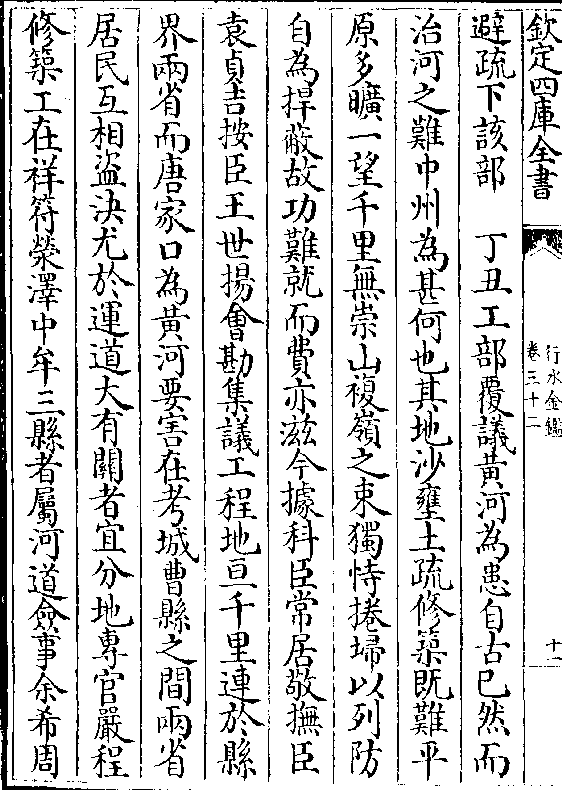 欽定四庫全書
行水金鑑
卷三十二
十一
避疏下該部　丁丑工部覆議黃河為患自古已然而
治河之難中州為甚何也其地沙壅土疏修築既難平
原多曠一望千里無崇山複嶺之束獨恃捲埽以列防
自為捍蔽故功難就而費亦滋今據科臣常居敬撫臣
袁貞吉按臣王世揚會勘集議工程地亘千里連於縣
界兩省而唐家口為黃河要害在考城曹縣之間兩省
居民互相盜決尤於運道大有關者宜分地專官嚴程
修築工在祥符滎澤中牟三縣者屬河道僉事余希周